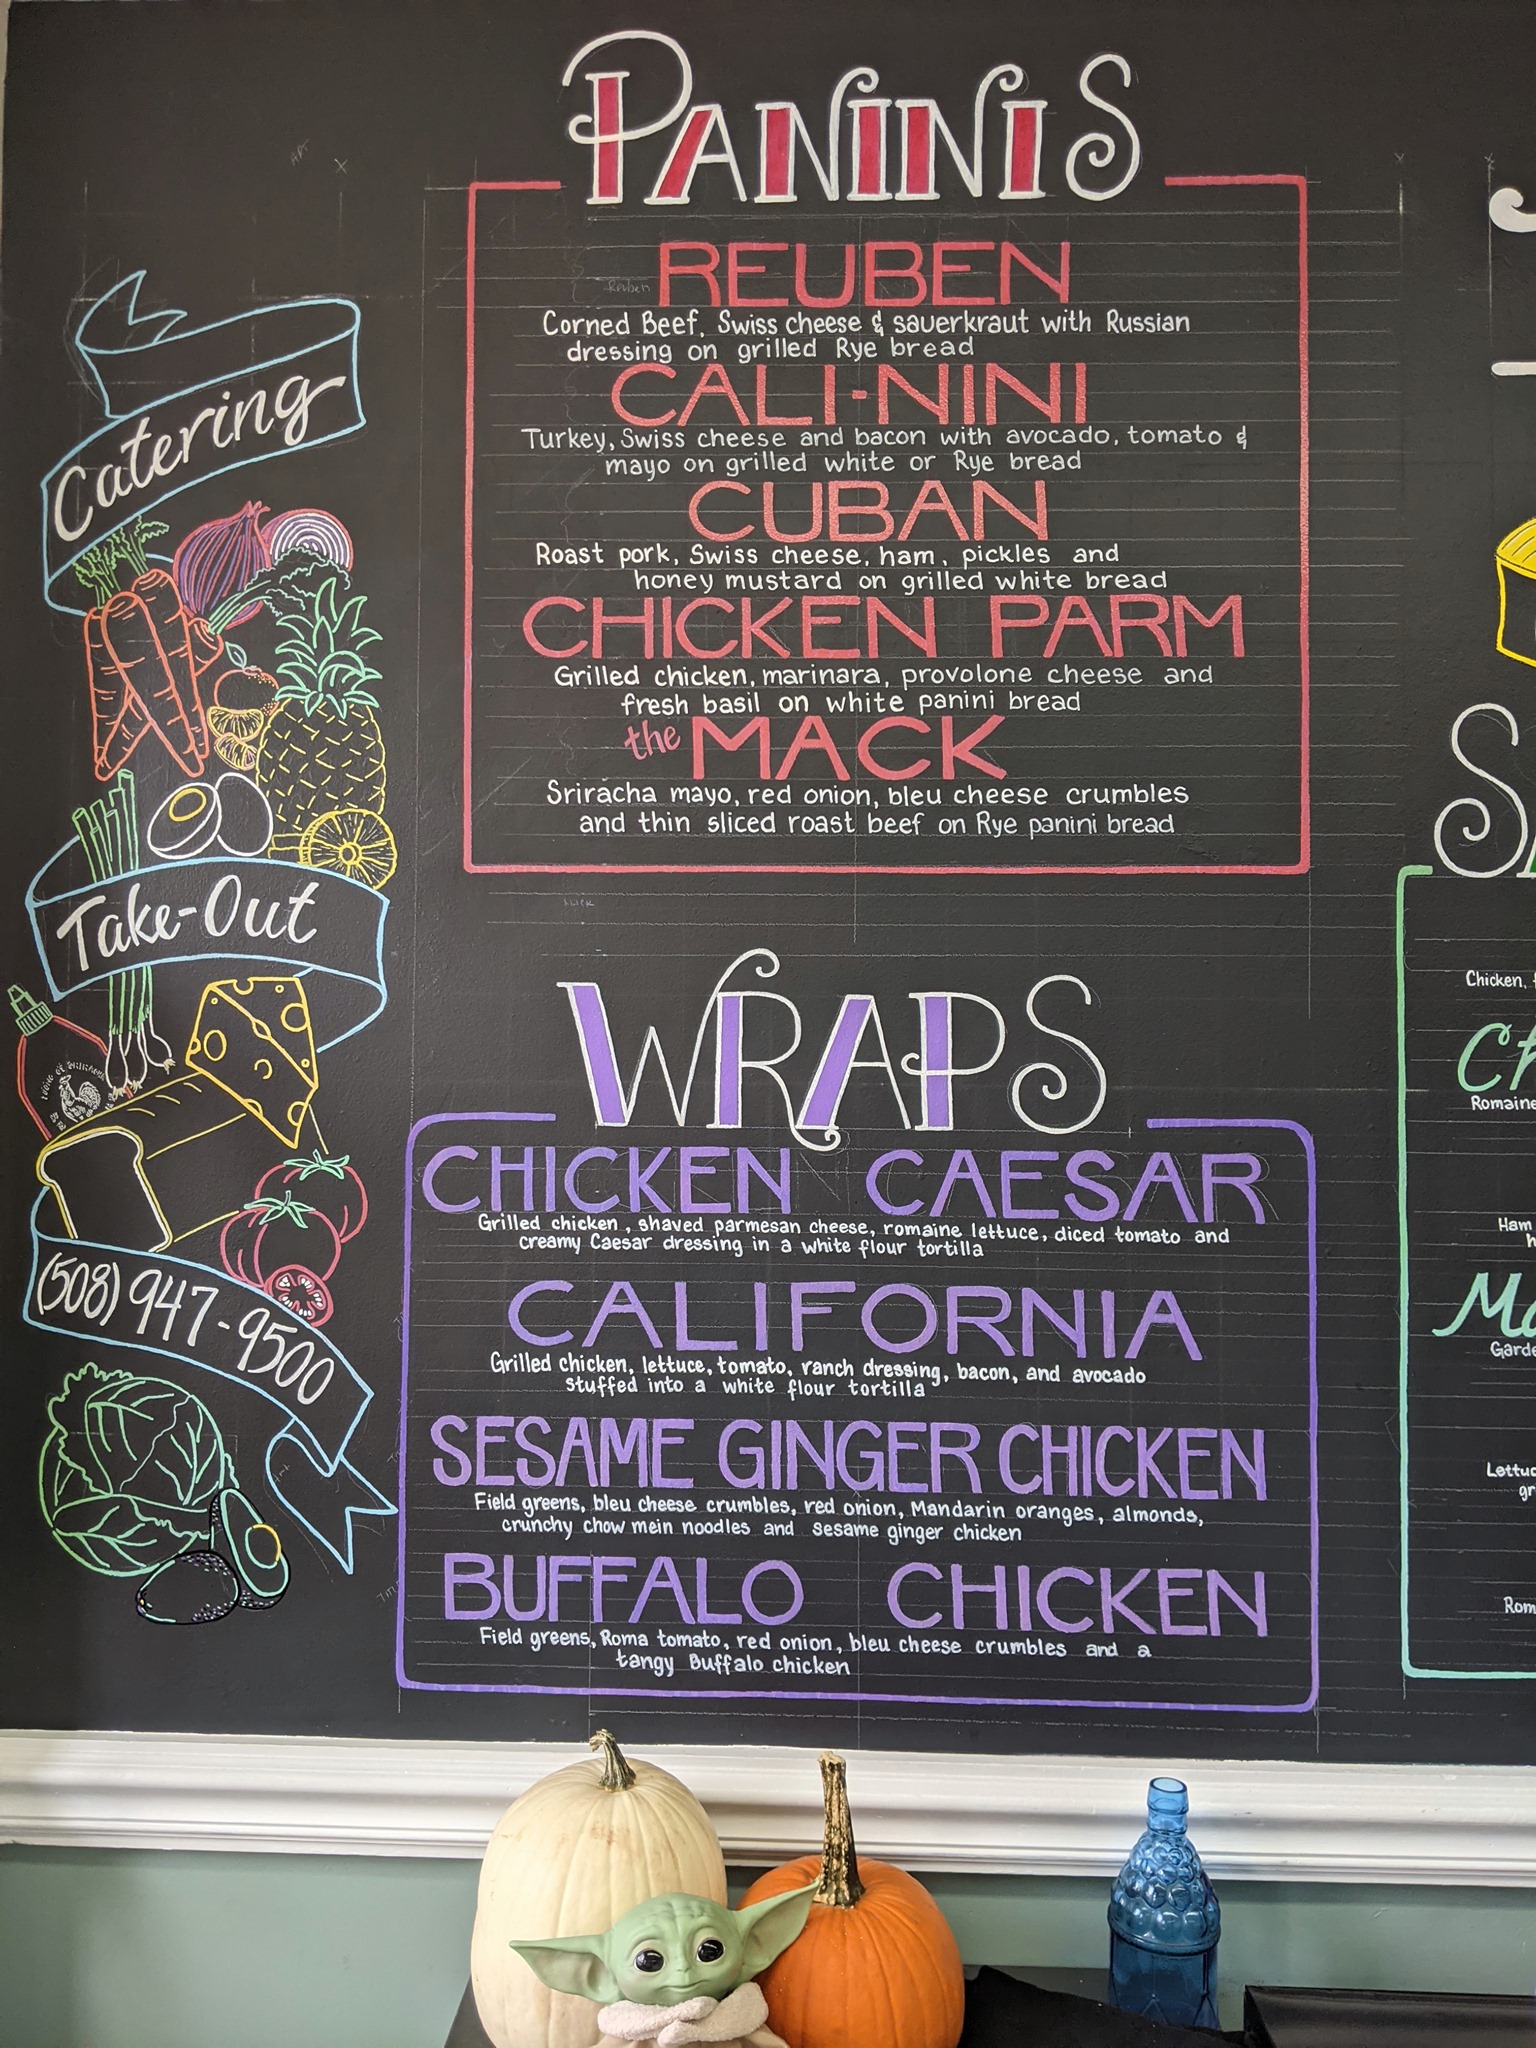 PANINIS
REUBEN
Corned Beef, Swiss cheese & sauerkraut with Russian
dressing on grilled Rye bread
CALI-NINI
Turkey, Swiss cheese and bacon with avocado, tomato &
mayo on grilled white or Rye bread
CUBAN
Roast pork, Swiss cheese, ham, pickles and
honey mustard on grilled white bread
CHICKEN PARM
Grilled chicken, marinara, provolone cheese and
fresh basil on white panini bread
the MACK
Sriracha mayo, red onion, bleu cheese crumbles
and thin sliced roast beef on Rye panini bread
WRAPS
CHICKEN CAESAR
Grilled chicken, shaved parmesan cheese, romaine lettuce, diced tomato and
creamy Caesar dressing in a white flour tortilla
CALIFORNIA
Grilled chicken, lettuce, tomato, ranch dressing, bacon, and avocado
stuffed into a white flour tortilla
SESAME GINGER CHICKEN
Field greens, bleu cheese crumbles, red onion, Mandarin oranges, almonds,
crunchy chow mein noodles and sesame ginger chicken
BUFFALO CHICKEN
Field greens, Roma tomato, red onion, bleu cheese crumbles and a
tangy Buffalo chicken
Catering
Take-Out
(508) 947-9500
Reuben
Chicken,
Romaine
Ham